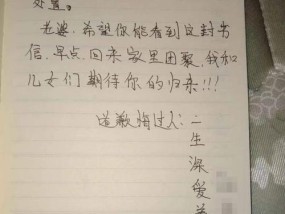 处置。
老婆,希望你能看到这封书
信,早点回来家里团聚,我和
儿女们期待你的归来!!!
道歉悔过人:二
生
深
爱
着